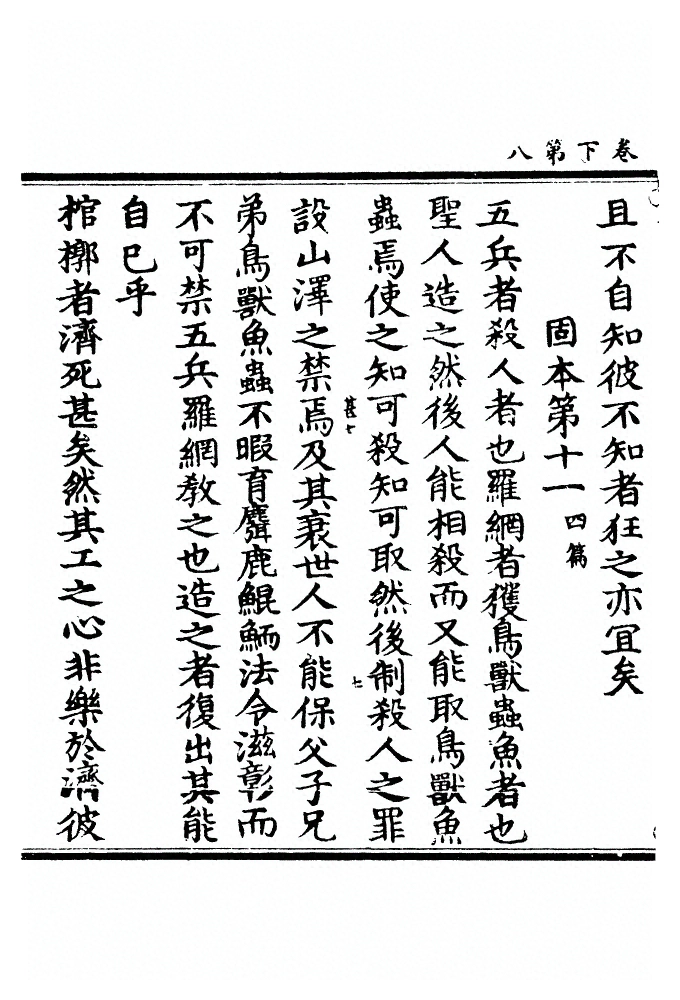 卷下第八
且不自知彼不知者狂之亦宜矣
固本第十一 四篇
五兵者殺人者也羅網者獲鳥獸蟲魚者也
聖人造之然後人能相殺而又能取鳥獸魚
蟲焉使之知可殺知可取然後制殺人之罪
七
設山澤之禁焉及其衰世人不能保父子兄
甚七
弟鳥獸魚蟲不暇育麛鹿鯤鮞法令滋彰而
不可禁五兵羅網教之也造之者復出其能
自已乎
棺槨者濟死甚矣然其工之心非樂於濟彼